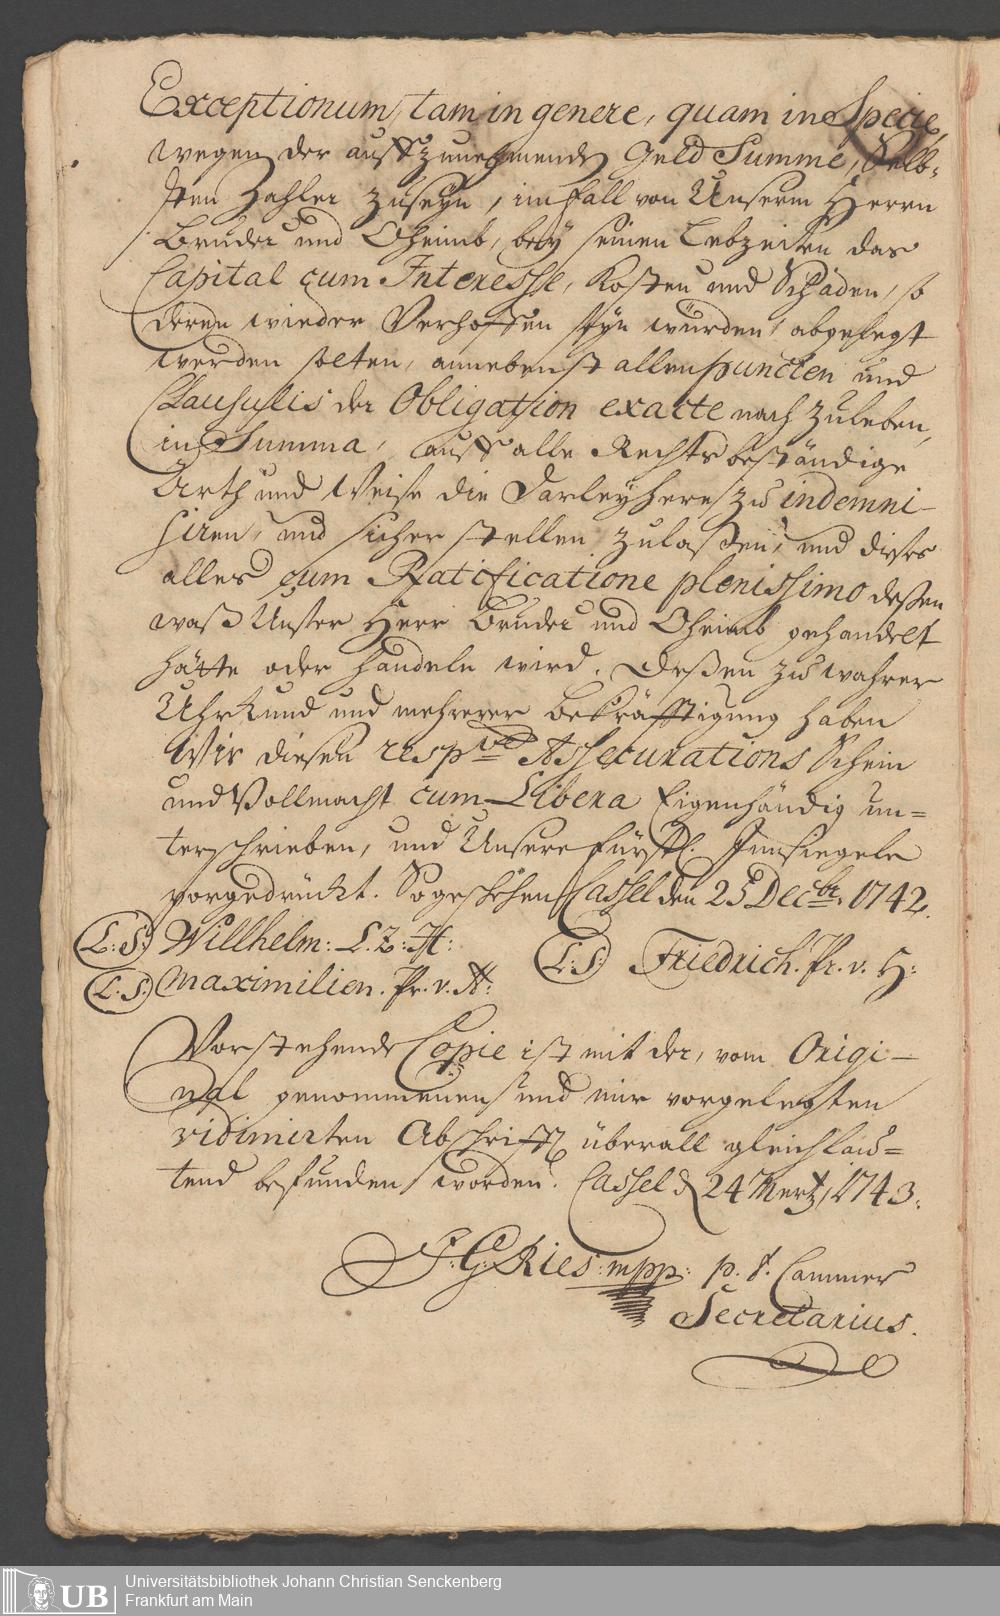 Exceptionum, tam in genere, quam in Specie,
wegen der auffzunehmenden Geld Summe, Selb-
sten Zahler zuseyn, im fall von Unserm Herrn
Bruder und Oheimb, bey seinen Lebzeiten das
Capital cum Interesse, Kosten und Schäden, so
deren wieder Verhoffen seyn würden, abgelegt
werden solten, annebenst allen puncten und
Clausulis der Obligation exacte nach zuleben,
in Summa, auff alle Rechts beständige
Arth und Weise die Darleyhere zu indemni-
siren, und sicher stellen zulaßen, und dieses
alles cum Ratificatione plenissimo deßen
waß Unser Herr Bruder und Oheimb gehandelt
hätte oder handeln wird. Deßen zu wahrer
Uhrkund und mehrerer bekräfftigung haben
Wir diesen respve Assecurations Schein
und Vollmacht cum Libera Eigenhändig un-
terschrieben, und Unsere fürstl. Innsiegele
vorgedrückt. So geschehen Cassel den 25 Decbr. 1742.
(L.S.) Willhelm. L. Z. H.
(L.S.) Friedrich. Pr. v. H:
(L.S.) Maximilien. Pr. v. H.
Vorstehende Copie ist mit der, vom Origi-
nal genommenen und mir vorgelegten
vidimirten Abschrifft überall gleichlau-
tend befunden worden. Cassel d 24 Mertz 1743.
J: G: Ries mpp. p. t. Cammer
Secretarius.
UB
Universitätsbibliothek Johann Christian Senckenberg
Frankfurt am Main